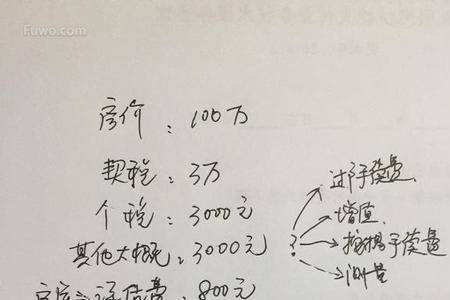 Fuwo.com
房价：100万
契税：3万
个税：3000元
其他大概：3000元
?
过户手续费
增值
按揭手续费
测量
800元